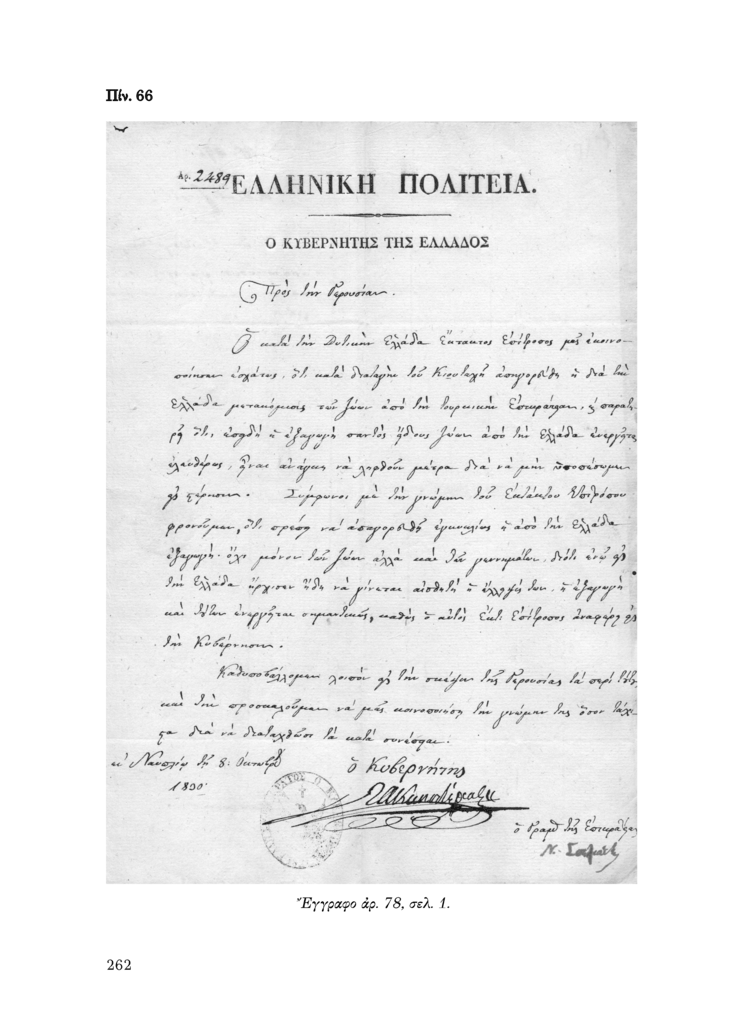 Πίν. 66
Αρ. 2489
ΕΛΛΗΝΙΚΗ ΠΟΛΙΤΕΙΑ.
Ο ΚΥΒΕΡΝΗΤΗΣ ΤΗΣ ΕΛΛΑΔΟΣ
Πρὸς τὴν Γερουσίαν.
Ὁ κατὰ τὴν Δυτικὴν Ἑλλάδα Ἔκτακτος Ἐπίτροπος μᾶς ἐκοινο-
ποίησεν ἐσχάτως, ὅτι κατὰ διαταγὴν τοῦ Κιουταχῆ ἀπηγορεύθη ἡ διὰ τὴν
Ἑλλάδα μετακόμισις τῶν ζώων ἀπὸ τὴν τουρκικὴν Ἐπικράτειαν, καὶ παρατη-
ρεῖ ὅτι, ἐπειδὴ ἡ ἐξαγωγὴ παντὸς εἴδους ζώων ἀπὸ τὴν Ἑλλάδα ἐνεργεῖται
ἐλευθέρως, εἶναι ἀνάγκη νὰ ληφθοῦν μέτρα διὰ νὰ μὴν ὑποπέσωμεν
εἰς στέρησιν. Σύμφωνοι μὲ τὴν γνώμην τοῦ Ἐκτάκτου Ἐπιτρόπου
φρονοῦμεν, ὅτι πρέπει νὰ ἀπαγορευθῇ ἡ ἀπὸ τὴν Ἑλλάδα
ἐξαγωγὴ ὄχι μόνον τῶν ζώων ἀλλὰ καὶ τῶν γεννημάτων, διότι ἐνῷ εἰς
τὴν Ἑλλάδα ἤρχισεν ἤδη νὰ γίνεται αἰσθητὴ ἡ ἔλλειψίς των, ἡ ἐξαγωγὴ
καὶ τούτων ἐνεργεῖται σημαντικῶς, καθὼς ὁ αὐτὸς Ἔκτ. Ἐπίτροπος ἀναφέρει εἰς
τὴν Κυβέρνησιν.
Καθυποβάλλομεν λοιπὸν εἰς τὴν σκέψιν τῆς Γερουσίας τὰ περὶ τούτου,
καὶ τὴν προσκαλοῦμεν νὰ μᾶς κοινοποιήσῃ τὴν γνώμην της ὅσον τάχι-
στα διὰ νὰ διαταχθῶσι τὰ κατὰ συνέπειαν.
ἐν Ναυπλίῳ τῇ 8: Ὀκτωβρίου
1830
ὁ Κυβερνήτης
Ι.Α.Καποδίστριας
ὁ Γραμ. τῆς Ἐπικρατείας
Ν.
Ἔγγραφο ἀρ. 78, σελ. 1.
262